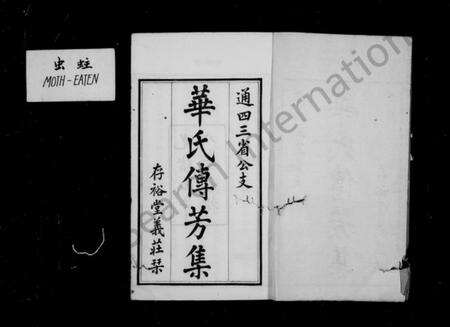 虫蛀
MOTH-EATEN
通四三省公支
華氏傳芳集
存裕堂義莊栞
Search International